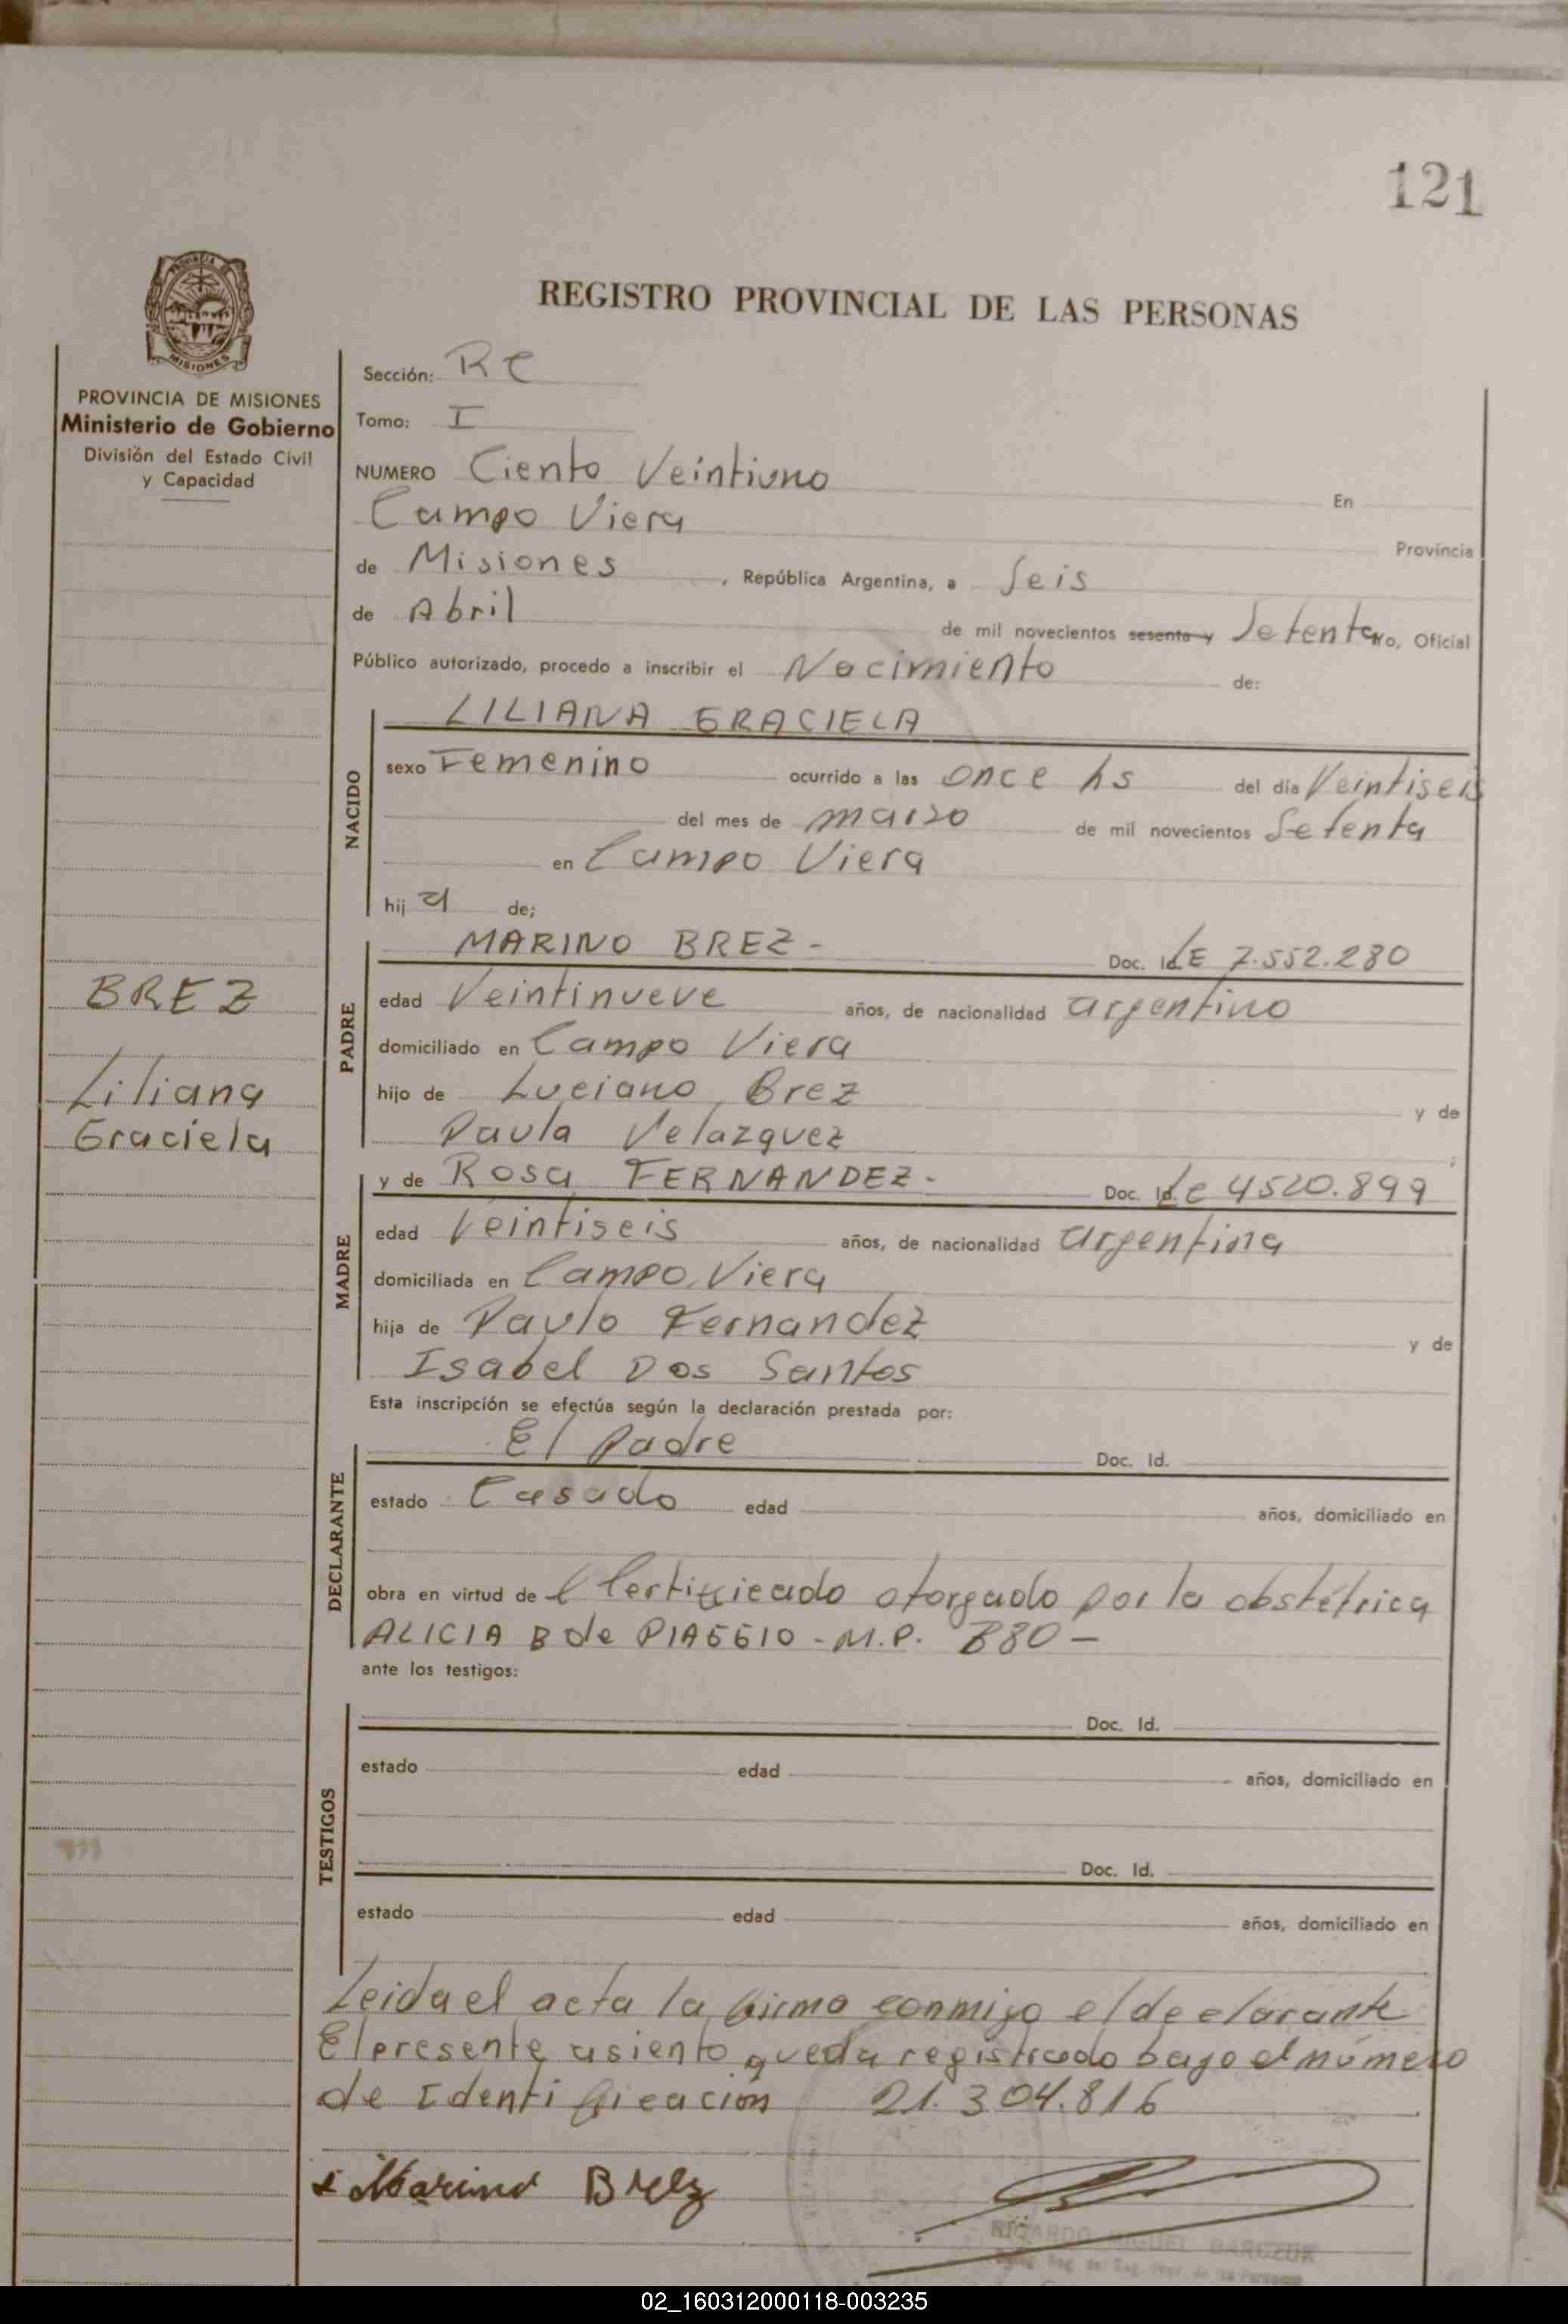 121
REGISTRO PROVINCIAL DE LAS PERSONAS
MISIONES
PROVINCIA DE MISIONES
Ministerio de Gobierno
División del Estado Civil
y Capacidad
Sección: RC
Tomo: I
NUMERO Ciento Veintiuno En
Campo Viera Provincia
de Misiones, República Argentina, a Seis
de Abril de mil novecientos sesenta y Setenta Yo, Oficial
Público autorizado, procedo a inscribir el Nacimiento de:
NACIDO
LILIANA GRACIELA
sexo Femenino ocurrido a las once hs del día Veintiseis
del mes de marzo de mil novecientos Setenta
en Campo Viera
hij a de;
PADRE
MARINO BREZ - Doc. Id. LE 7.552.280
BREZ
edad Veintinueve años, de nacionalidad argentino
domiciliado en Campo Viera
Liliana
hijo de Luciano Brez y de
Graciela
Paula Velazquez
MADRE
y de Rosa FERNANDEZ - Doc. Id. LC 4520.899
edad Veintiseis años, de nacionalidad argentina
domiciliada en Campo Viera
hija de Paulo Fernandez y de
Isabel Dos Santos
Esta inscripción se efectúa según la declaración prestada por:
DECLARANTE
El Padre Doc. Id.
estado Casado edad años, domiciliado en
obra en virtud de Certificado otorgado por la obstétrica
ALICIA B de PIAGGIO - M.P. 880 -
ante los testigos:
TESTIGOS
Doc. Id.
estado edad años, domiciliado en
Doc. Id.
estado edad años, domiciliado en
Leida el acta la firma conmigo el declarante
El presente asiento queda registrado bajo el número
de Identificación 21.304.816
Marino Brez
RICARDO MIGUEL BARCZUK
02_160312000118-003235